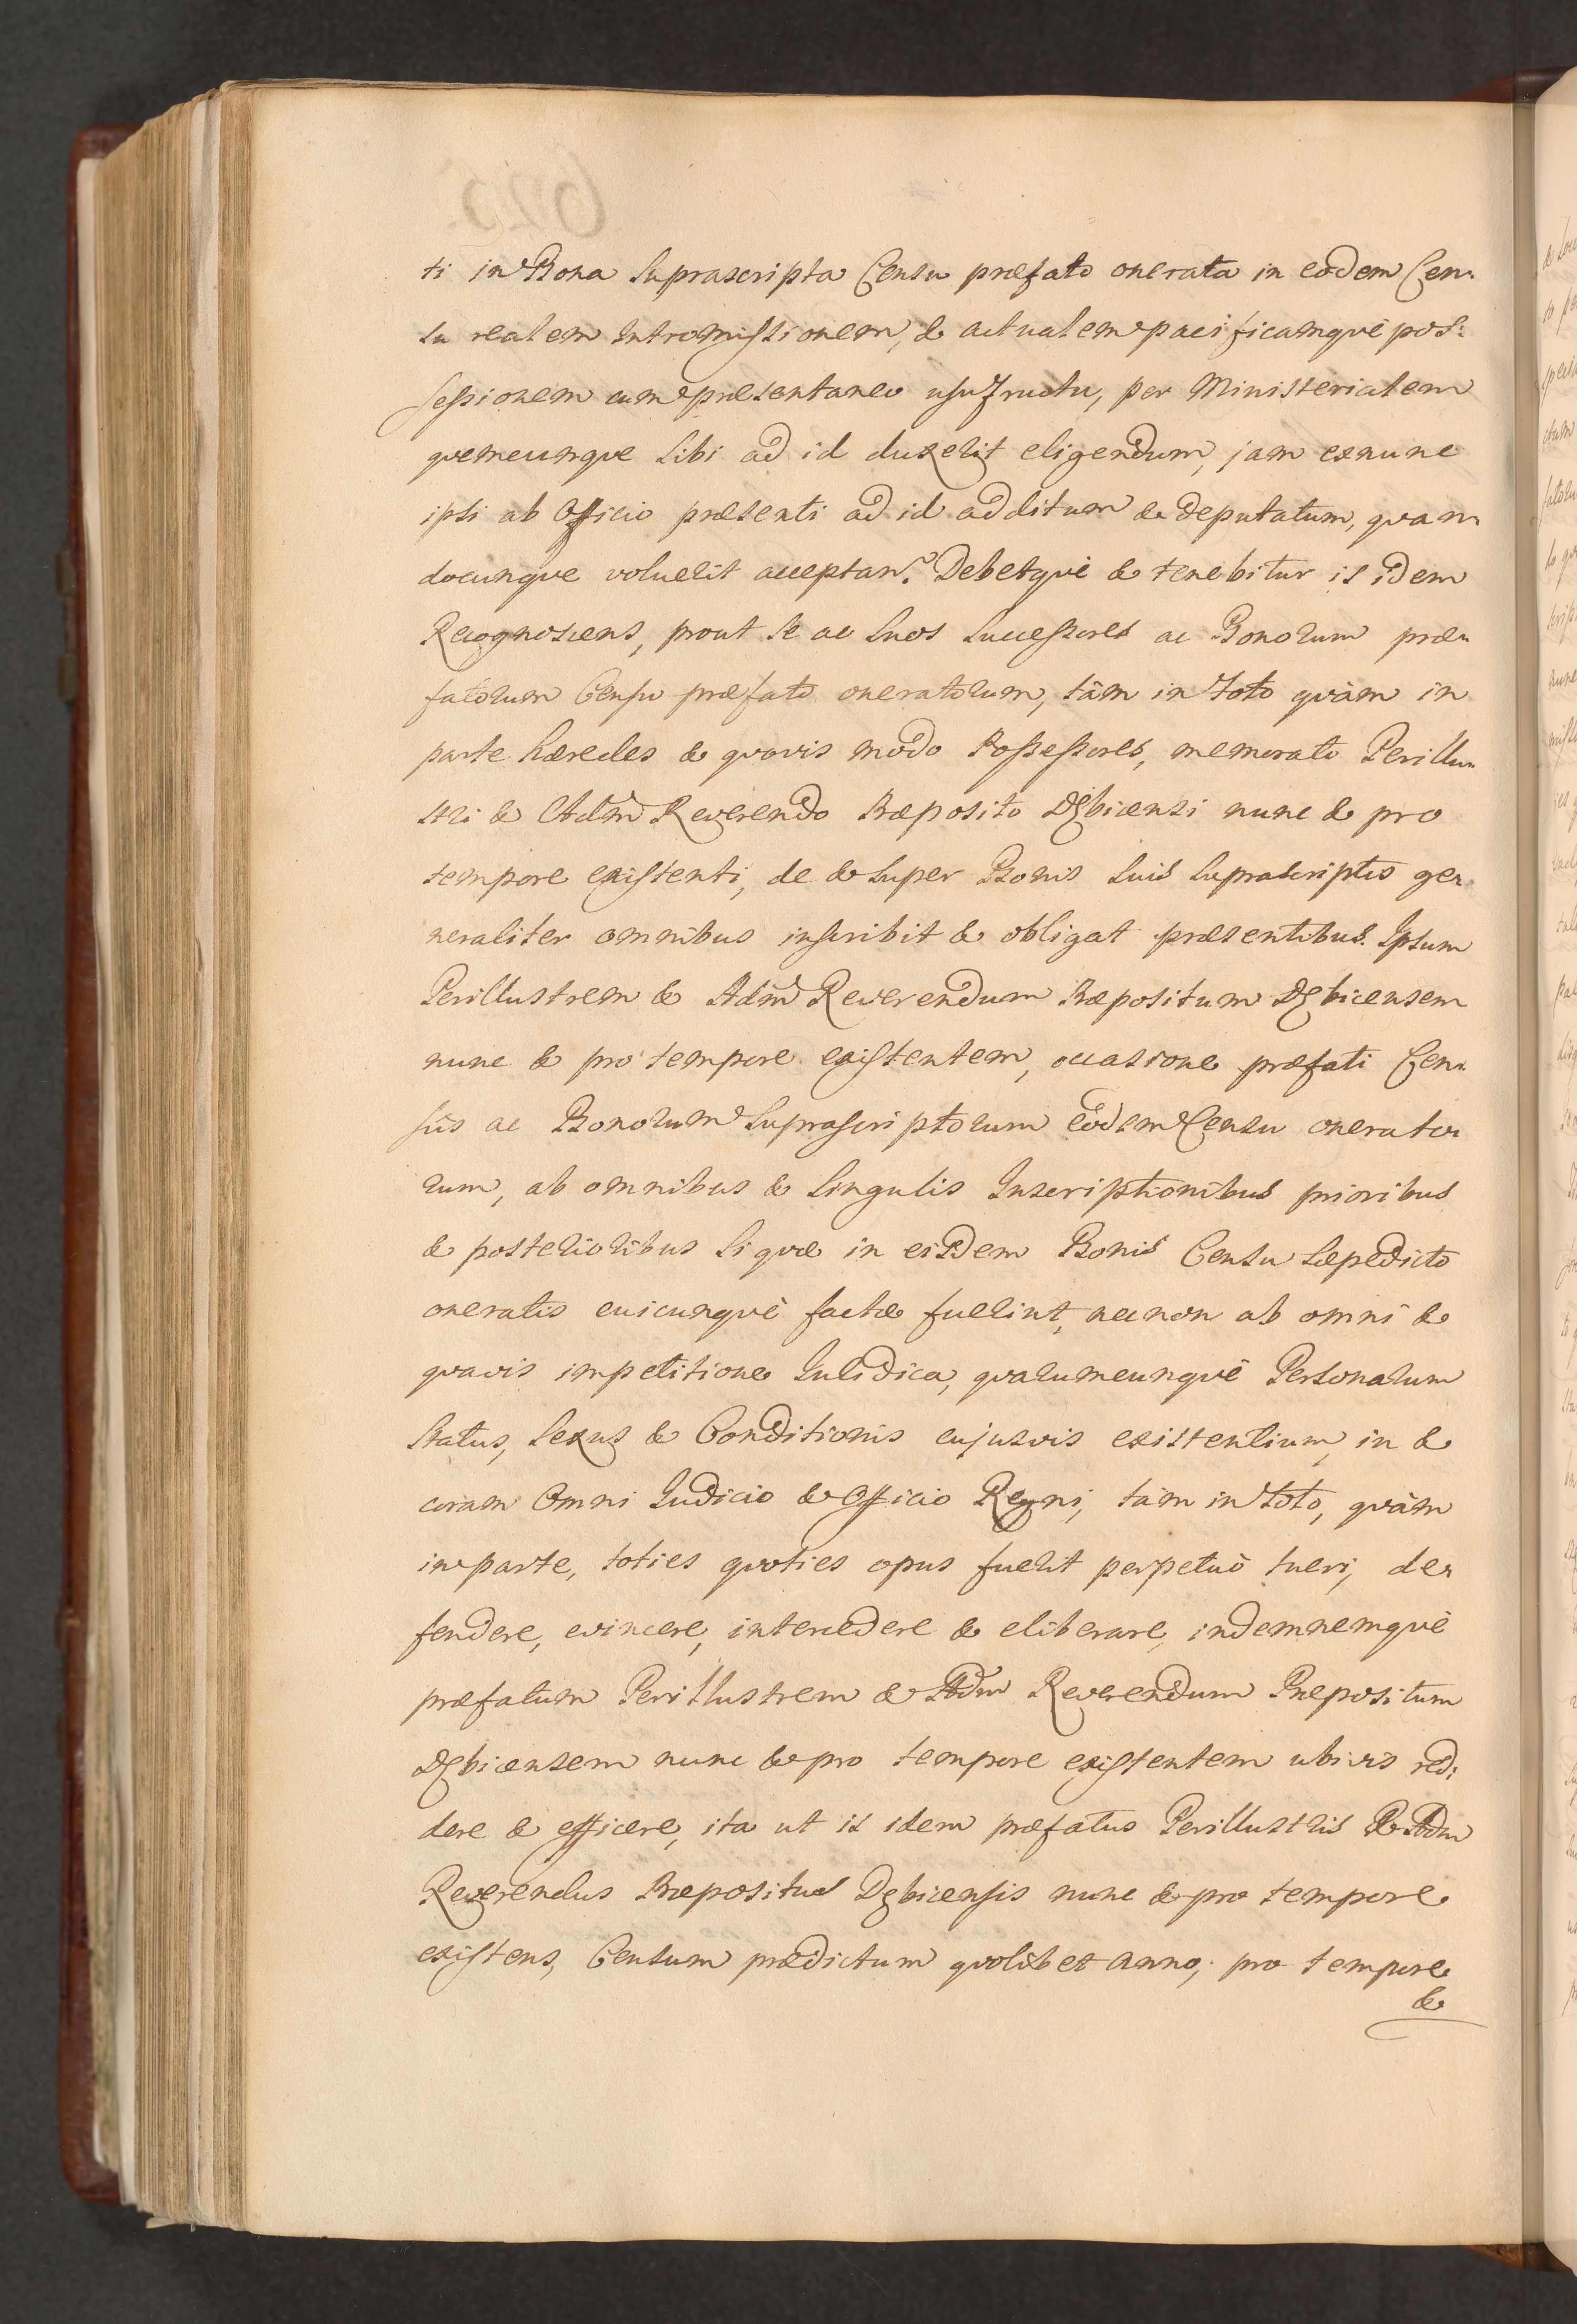 ti in Bona Suprascripta Censu præfato onerata in eodem Cen-
su realem Intromissionem, & actualem pacificamquè pos-
sessionem cum præsentaneo usufructu, per Ministerialem
quemcunque Sibi ad id duxerit eligendum, jam exnunc
ipsi ab Officio præsenti ad id additum & deputatum, quan-
docunque voluerit acceptan. Debetquè & tenebitur is idem
Recognoscens, prout Se ac Suos Successores ac Bonorum præ-
fatorum Censu præfato oneratorum, tàm in toto quàm in
parte hæredes & quovis modo Possessores, memorato Perillu-
stri & Adm Reverendo Præposito Dębicensi nunc & pro
tempore existenti, de & Super Bonis Suis Suprascriptis ge-
neraliter omnibus inscribit & obligat præsentibus. Ipsum
Perillustrem & Adm Reverendum Præpositum Dębicensem
nunc & pro tempore existentem, occasione præfati Cen-
sûs ac Bonorum Suprascriptorum eodem Censu onerato-
rum, ab omnibus & Singulis Inscriptionibus prioribus
& posterioribus Si quæ in eisdem Bonis Censu Sæpedicto
oneratis cuicunquè factæ fuerint, necnon ab omni &
quavis impetitione Iuridica, quarumcunquè Personarum
Status, Sexus & Conditionis cujusvis existentium, in &
coram Omni Iudicio & Officio Regni, tàm in toto, quàm
in parte, toties quoties opus fuerit perpetuò tueri, de-
fendere, evincere, intercedere & eliberare, indemnemquè
præfatum Perillustrem & Adm Reverendum Præpositum
Dębicensem nunc & pro tempore existentem ubivis red-
dere & efficere, ita ut is idem præfatus Perillustris & Adm
Reverendus Præpositus Dębicensis nunc & pro tempore
existens, Censum prædictum quolibet anno, pro tempore
&